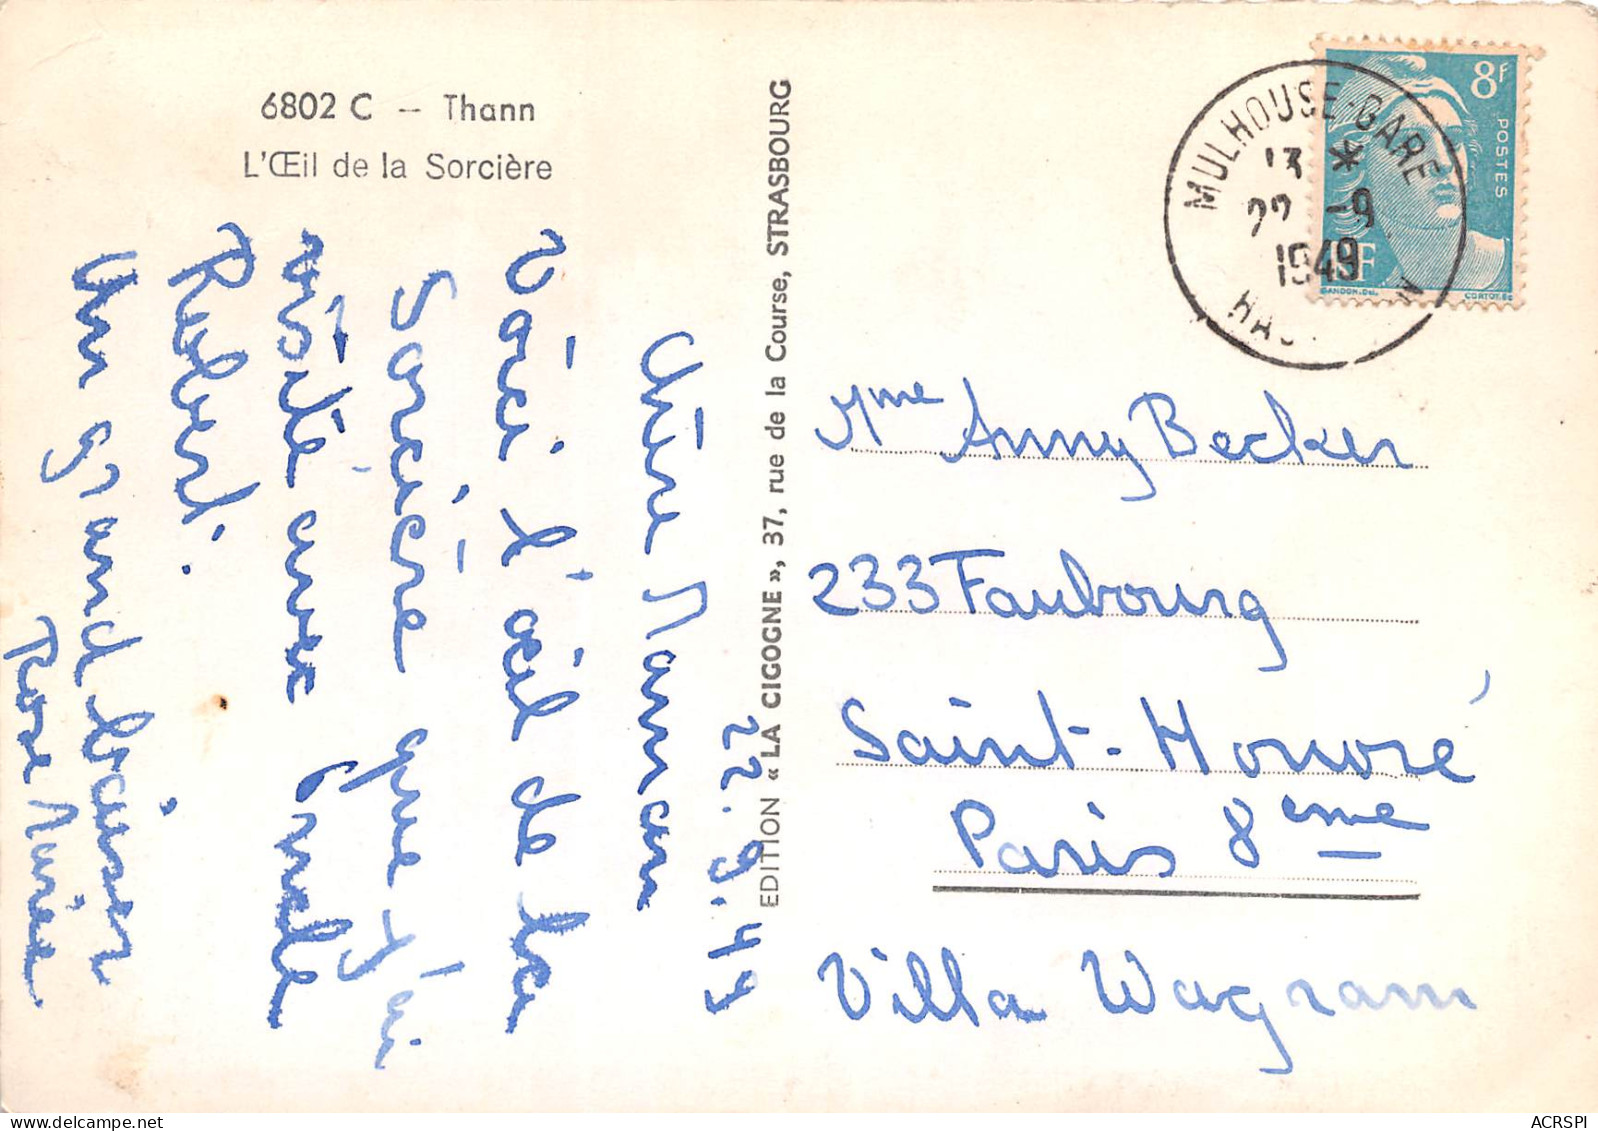 6802 C – Thann
L'Œil de la Sorcière
22.9.49
Chère Maman
Voici l'œil de la
Sorcière que j'ai
visité avec Oncle
Robert.
Un grand baiser
Rose Marie
EDITION « LA CIGOGNE », 37, rue de la Course, STRASBOURG
8f
POSTES
RF
GANDON.Del.
CORTOT.Sc
MULHOUSE-GARE
13 *
22 -9
1949
Mme Anny Becker
233 Faubourg
Saint-Honoré
Paris 8eme
Villa Wagram
ACRSPI